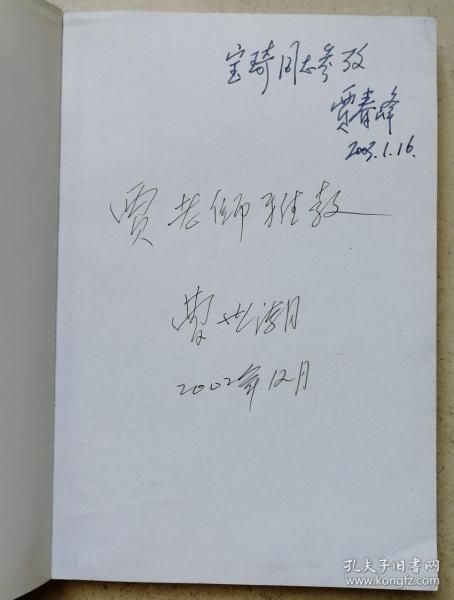 宝琦同志参考
贾春峰
2003.1.16.
贾老师雅教
曹世潮
2002年12月
孔夫子旧书网
www.kongfz.com